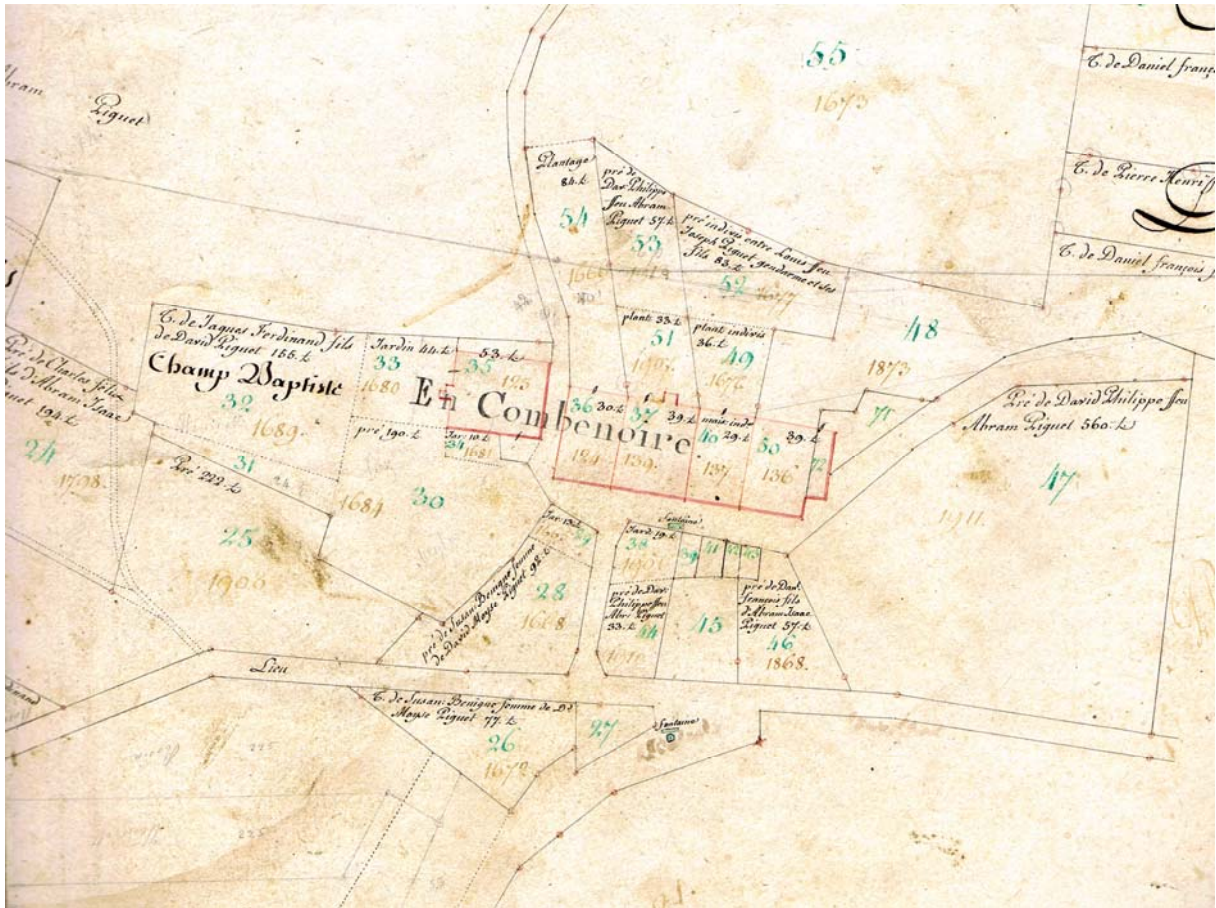 55
1673
T. de Daniel franç
T. de Pierre Henri ff
T. de Daniel françois f
Abram
Piguet
Plantage
84. t
54
1666
pré de
Dav. Philippe
ffeu Abram
Piguet 57. t
53
pré indivis entre Louis ffeu
Joseph Piguet gendarme et ses
fils 83. t
52
1677
plant 33. t
51
plant indivis
36. t
49
1676
48
1873
T. de Jaques Ferdinand fils
de David Piguet 155. t
Champ Baptiste
32
1689.
Jardin 44. t
33
1680
53. t
35
123
En Combenoire
36 30. t
124
37 39. t
139.
maix. ind.
40 29. t
137
50 39. t
136
71
72
Pré de David Philippe ffeu
Abram Piguet 560. t
47
1911.
Pré de Charles félix
fils d'Abram Isaac
Piguet 194. t
24
1798.
31
pré 190. t
Jar. 10. t
34
1681
30
1684
Pré 222. t
25
1906
Jar. 13. t
29
Fontaine
Jard. 19. t
38
39
41
42
43
pré de Susan: Benigne femme
de David Moyse Piguet 92. t
28
1668
pré de Dav.
Philippe ffeu
Abr. Piguet
33. t 44
1910
45
pré de Dan.
françois fils
d'Abram Isaac
Piguet 57. t
46
1868.
Lieu
T. de Susan: Benigne femme de Dd
Moyse Piguet 77. t
26
1672
27
Fontaine
225
225